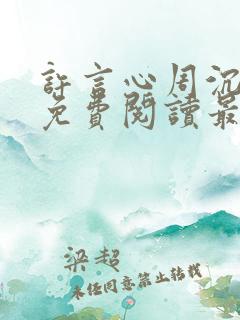 許言心周沉
免費閱讀最
梁超
未经同意禁止转载